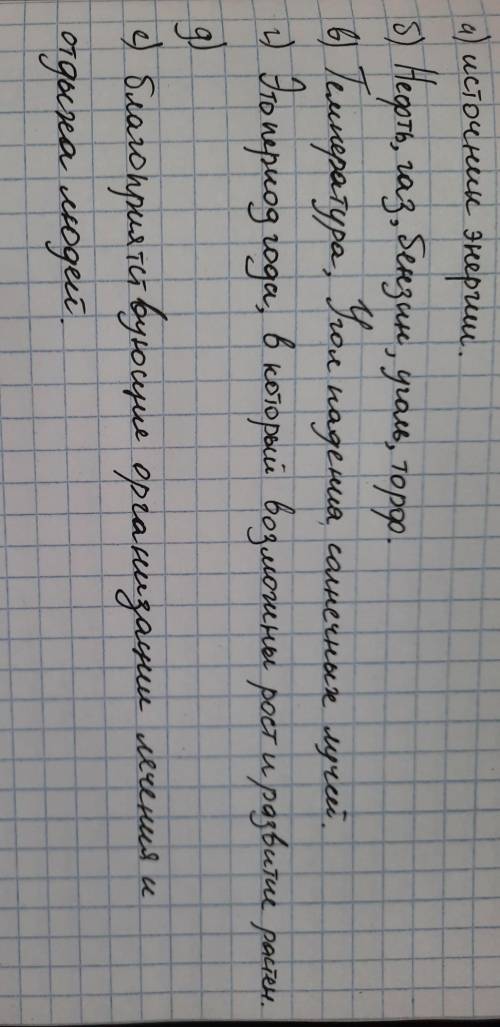 а) источник энергии.
б) Нефть, газ, бензин, уголь, торф.
в) Температура, Угол падения солнечных лучей.
г) Это период года, в который возможны рост и развитие растен.
д)
е) благоприятствующие организации лечения и
отдыха людей.